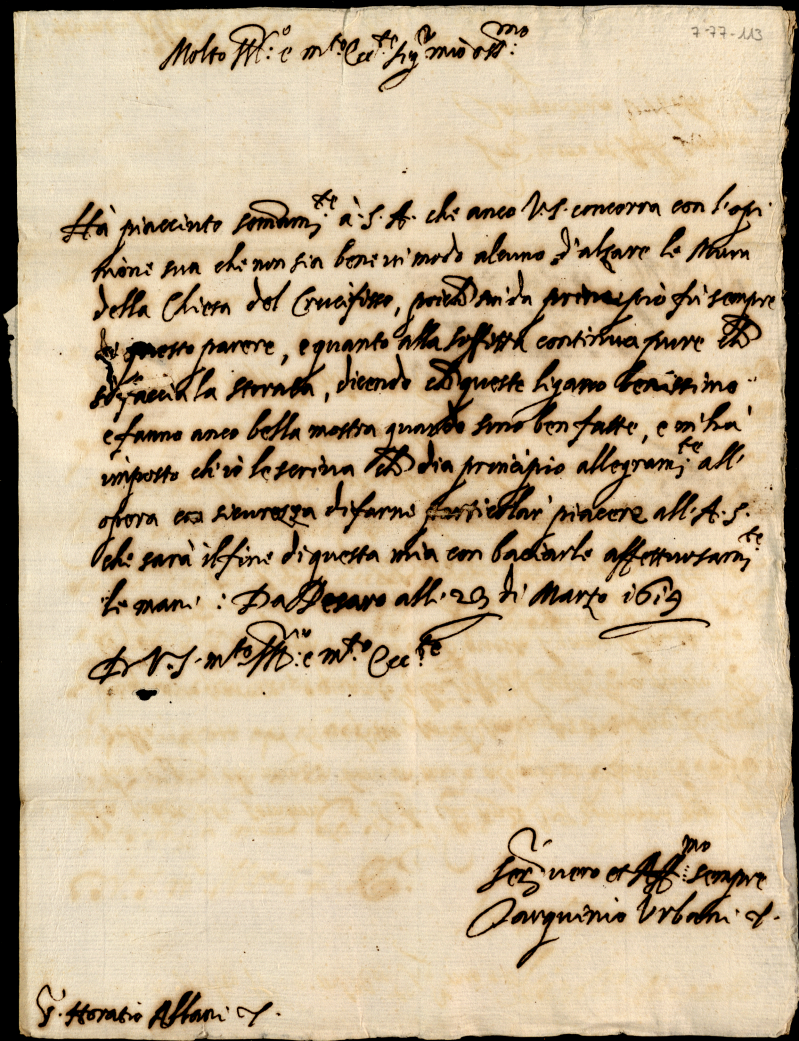 7-77-113
Molto Ill:re e m.to Ecc.te Sig.r mio oss.mo
Hà piacciuto somam.te à S. A. che anco V.S. concorra con l'opi
nione sua che non sia bene in modo alcuno d'alzare le Mura
della Chiesa del Crucifisso, poiché sin da principio fù sempre
di questo parere, e quanto alla soffitta continua pure ch
si faccia la storata, dicendo ch queste ligano benissimo
e fanno anco bella mostra quando sono ben fatte, e m'hà
imposto ch'io le scriva ch dia principio allegram.te all'
opera con sicurezza di farne particolar piacere all'A. S.
che sarà il fine di questa mia con baciarle affettuosam.te
le mani: Da Pesaro alli 23 di Marzo 1619
D V. S. m.to Ill:re e m.to Ecc.te
Ser.r vero et Aff.mo sempre
Tarquinio Urbani
S.r Horatio Albani